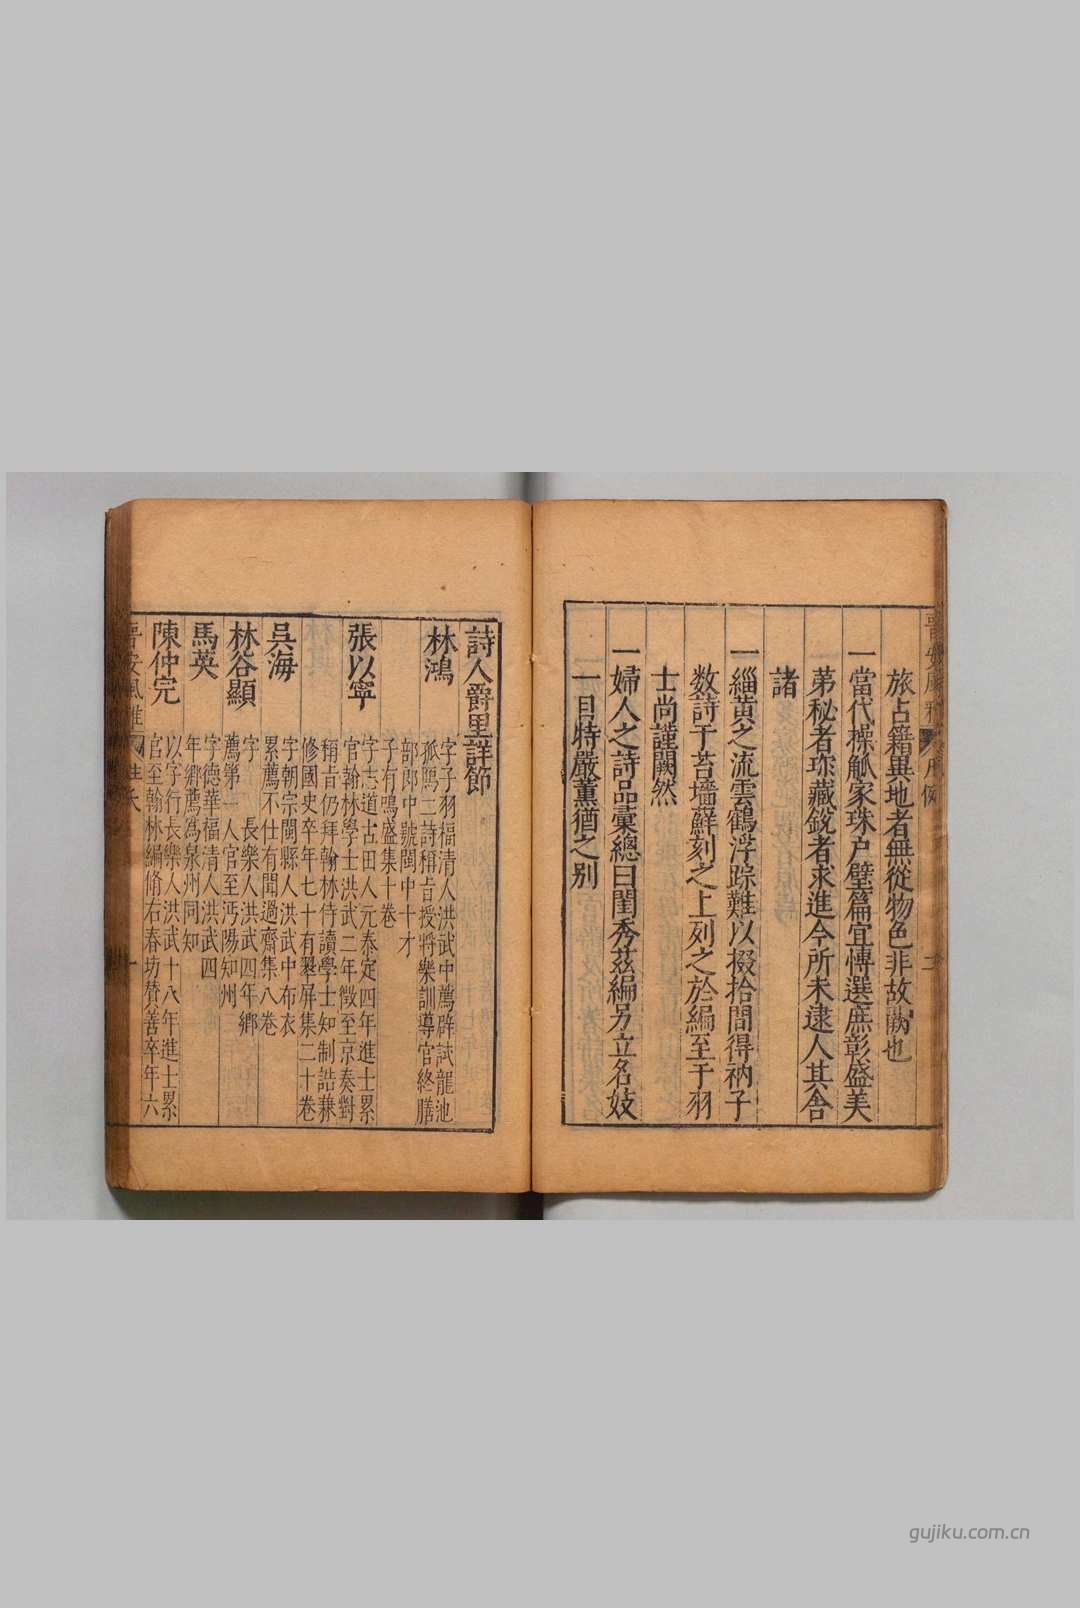 旅占籍異地者無從物色非故漏也
一當代操觚家珠户璧篇宜慱選庶彰盛美
苐秘者琛藏銳者求進今所未逮人其舍
諸
一緇黄之流雲鶴浮踪難以掇拾間得衲子
數詩于苔墻蘚刻之上列之於編至于羽
士尚謹闕然
一婦人之詩品彙總曰閨秀茲編另立名妓
一目特嚴薰猶之别
詩人爵里詳節
林鴻
字子羽福清人洪武中薦辟試龍池
孤鴈二詩稱旨授將樂訓導官終膳
部郎中號閩中十才
子有鳴盛集十卷
張以寧
字志道古田人元泰定四年進士累
官翰林學士洪武二年徵至京奏對
稱旨仍拜翰林侍讀學士知制誥兼
修國史卒年七十有翠屏集二十卷
吳海
字朝宗閩縣人洪武中布衣
累薦不仕有聞過齋集八卷
林谷顯
字 長樂人洪武四年鄉
薦第一人官至沔陽知州
馬英
字德華福清人洪武四
年鄉薦爲泉州同知
陳仲完
以字行長樂人洪武十八年進士累
官至翰林編脩右春坊賛善卒年六
晋安風雅
gujiku.com.cn